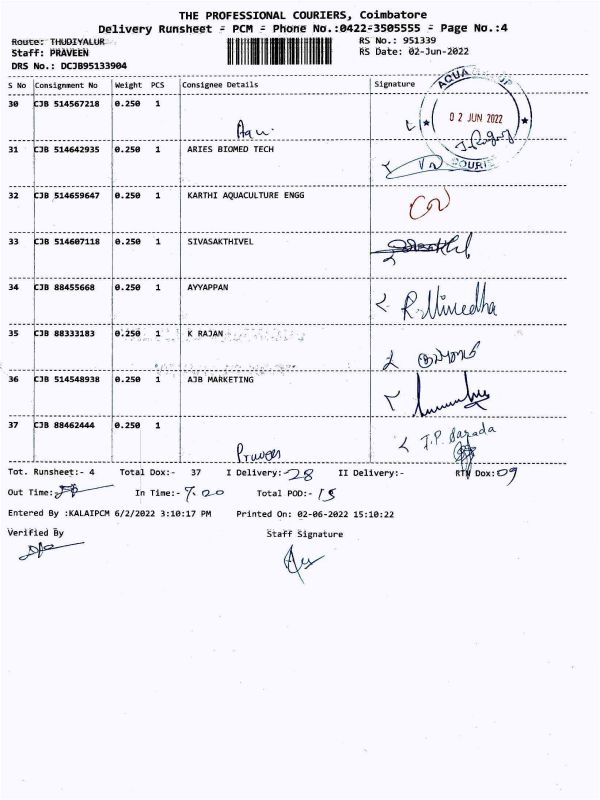 THE PROFESSIONAL COURIERS, Coimbatore
Delivery Runsheet - PCM - Phone No.:0422-3505555 - Page No.:4
Route: THUDIYALUR RS No.: 951339
Staff: PRAVEEN RS Date: 02-Jun-2022
DRS No.: DCJB95133904
S No Consignment No Weight PCS Consignee Details Signature
30 CJB 514567218 0.250 1
AQUA GROUP
02 JUN 2022
31 CJB 514642935 0.250 1 ARIES BIOMED TECH
32 CJB 514659647 0.250 1 KARTHI AQUACULTURE ENGG
33 CJB 514607118 0.250 1 SIVASAKTHIVEL
34 CJB 88455668 0.250 1 AYYAPPAN
35 CJB 88333183 0.250 1 K RAJAN
36 CJB 514548938 0.250 1 AJB MARKETING
37 CJB 88462444 0.250 1
Tot. Runsheet:- 4 Total Dox:- 37 I Delivery:- 28 II Delivery:- RTN Dox:- 09
Out Time:- In Time:- 7.20 Total POD:- 15
Entered By :KALAIPCM 6/2/2022 3:10:17 PM Printed On: 02-06-2022 15:10:22
Verified By Staff Signature